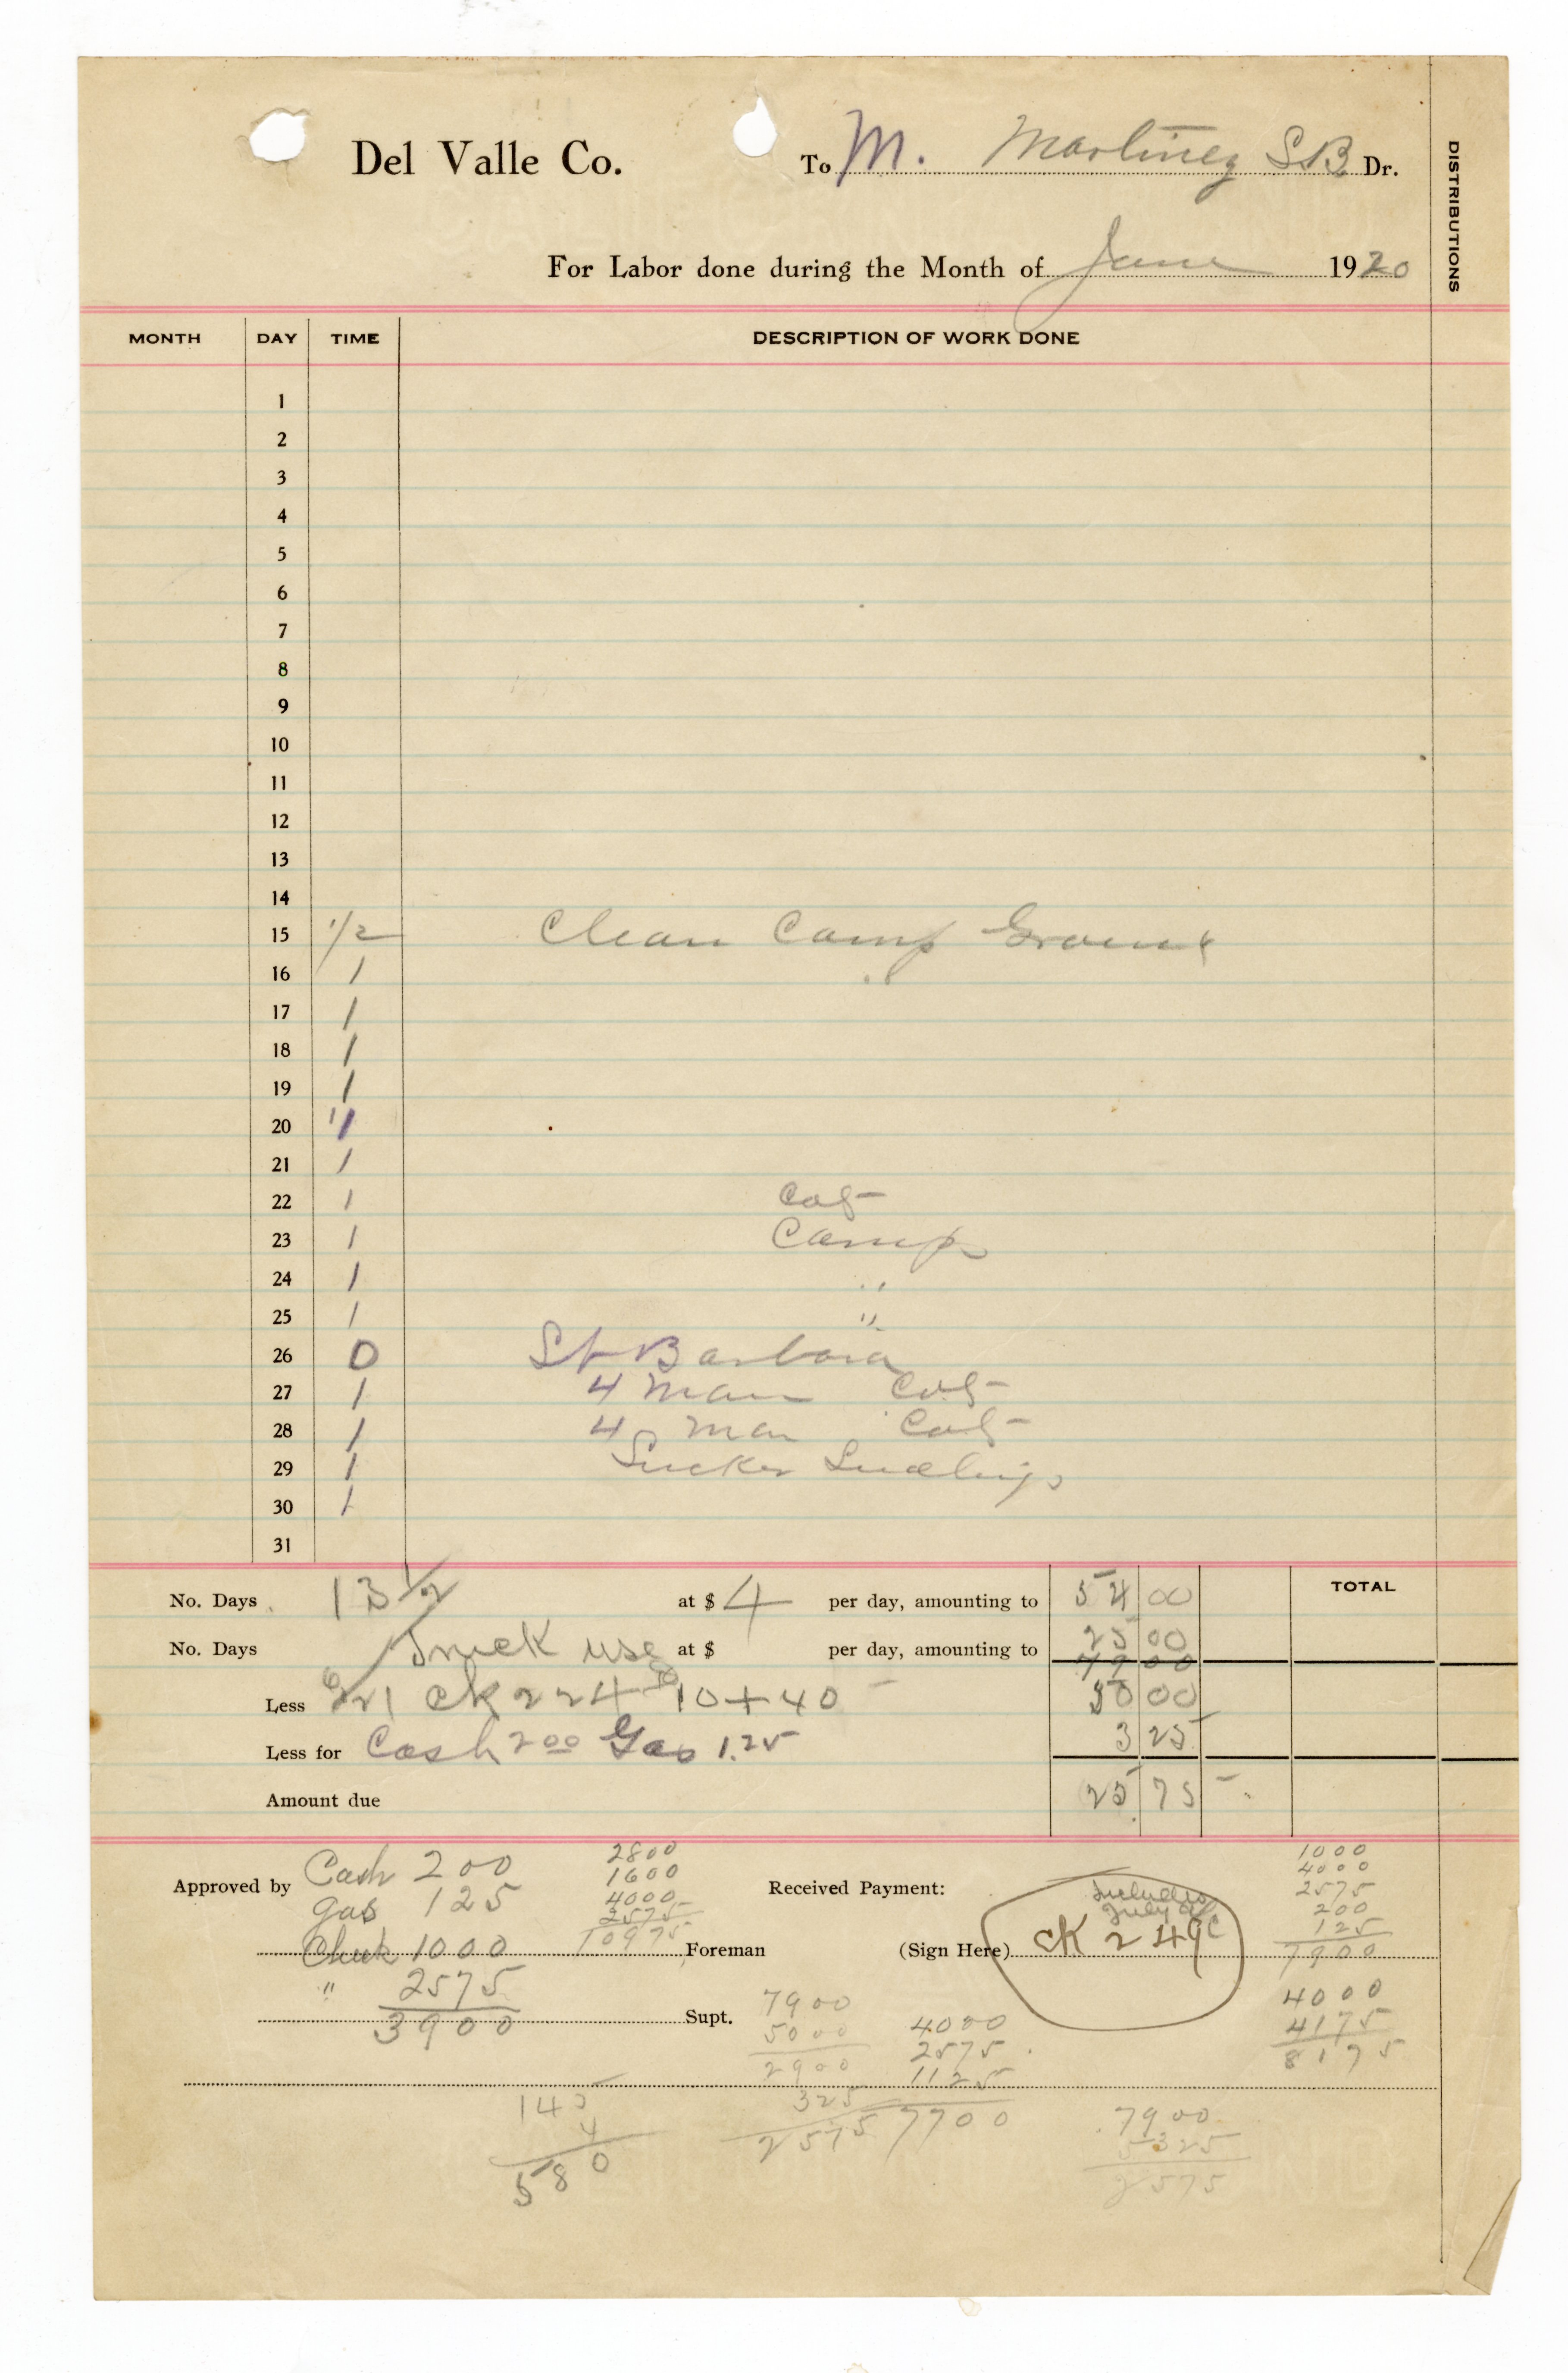 Del Valle Co. To M. Martinez S.B. Dr.
For Labor done during the Month of June 1920
DISTRIBUTIONS
MONTH DAY TIME DESCRIPTION OF WORK DONE
1
2
3
4
5
6
7
8
9
10
11
12
13
14
15 1/2 Clean Camp Ground
16 1 "
17 1
18 1
19 1
20 1
21 1
22 1 Cot
23 1 Camp
24 1 "
25 1 "
26 0 St Barbara
27 1 4 man Cot
28 1 4 man Cot
29 1 Sucker
30 1
31
No. Days 13 1/2 at $ 4 per day, amounting to 54 00 TOTAL
No. Days Truck use at $ per day, amounting to 25 00
79 00
Less 6/21 ck 224 10 + 40 50 00
Less for Cash 2 00 Gas 1.25 3 25
Amount due 25 75
Approved by Cash 200
Gas 125
Check 1000 Foreman
" 2575
3900 Supt.
2800
1600
4000
2575
10975
Received Payment:
Includes
July
(Sign Here) CK 249
1000
4000
2575
200
125
7900
4000
4175
8175
7900
5000
2900
325
2575
4000
2575
1125
7700
145
4
580
7900
5325
2575